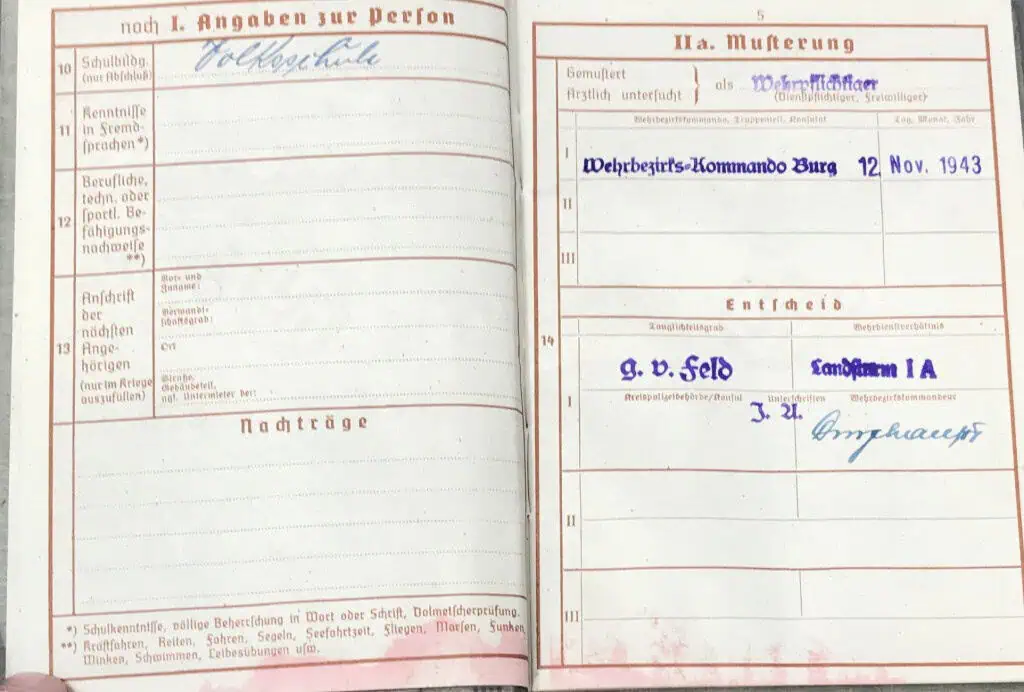 noch I. Angaben zur Person
10
Schulbildg.
(nur Abschluß)
Volksschule
11
Kenntnisse
in Fremd-
sprachen*)
12
Berufliche,
techn. oder
sportl. Be-
fähigungs-
nachweise
**)
13
Anschrift
der
nächsten
Ange-
hörigen
(nur im Kriege
auszufüllen)
Vor- und
Zuname:
Verwandt-
schaftsgrad:
Ort
Straße,
Gebäudeteil,
ggf. Untermieter bei:
Nachträge
*) Schulkenntnisse, völlige Beherrschung in Wort oder Schrift, Dolmetscherprüfung.
**) Kraftfahren, Reiten, Fahren, Segeln, Seefahrtzeit, Fliegen, Morsen, Funken,
Winken, Schwimmen, Leibesübungen usw.
5
IIa. Musterung
Gemustert
Ärztlich untersucht
als Wehrpflichtiger
(Dienstpflichtiger, Freiwilliger)
Wehrbezirkskommando, Truppenteil, Konsulat
Tag, Monat, Jahr
I
Wehrbezirks-Kommando Burg 12. Nov. 1943
II
III
Entscheid
14
Tauglichkeitsgrad
Wehrdienstverhältnis
g. v. Feld
Landsturm I A
I
Kreispolizeibehörde/Konsul
Unterschriften
Wehrbezirkskommandeur
J. A.
II
III